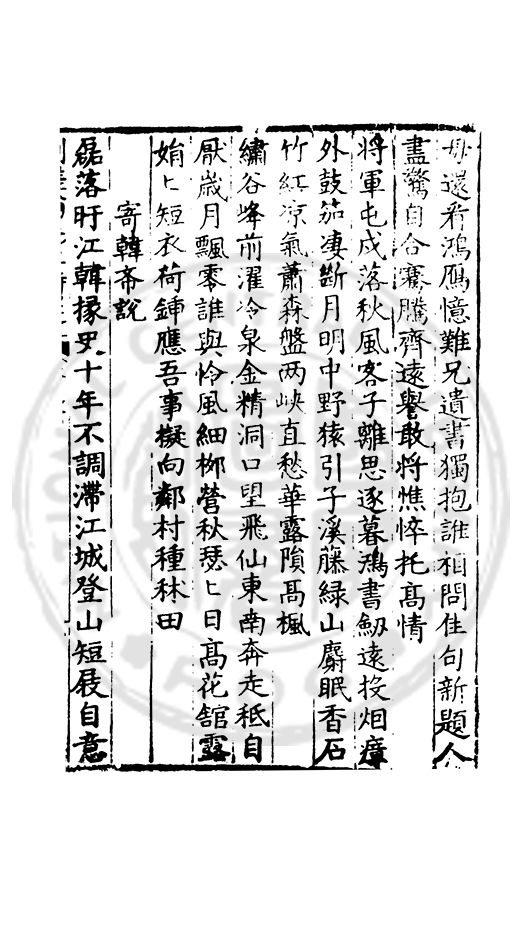 毋還看鴻鴈憶難兄遺書獨抱誰相問佳句新題人
盡驚自合騫騰齊遠譽敢將憔悴托高情
將軍屯戍落秋風客子離思逐暮鴻書劒遠投烟瘴
外鼓笳凄斷月明中野猿引子溪藤綠山麝眠香石
竹紅凉氣蕭森盤两峽直愁華露隕髙楓
繡谷峰前濯冷泉金精洞口望飛仙東南奔走秪自
厭歲月飄零誰與怜風細栁營秋瑟〻日高花館露
娟〻短衣荷鍤應吾事擬向鄰村種秫田
寄韓斋說
磊落盱江韓掾史十年不調滯江城登山短屐自意